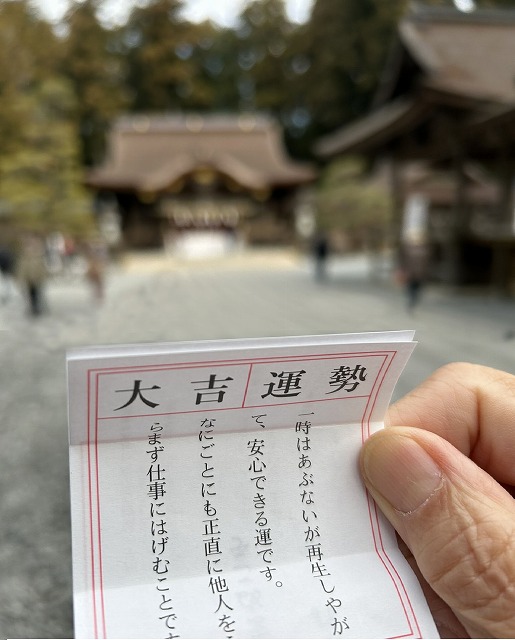 運勢
大吉
一時はあぶないが再生しやが
て、安心できる運です。
なにごとにも正直に他人を
らまず仕事にはげむことです